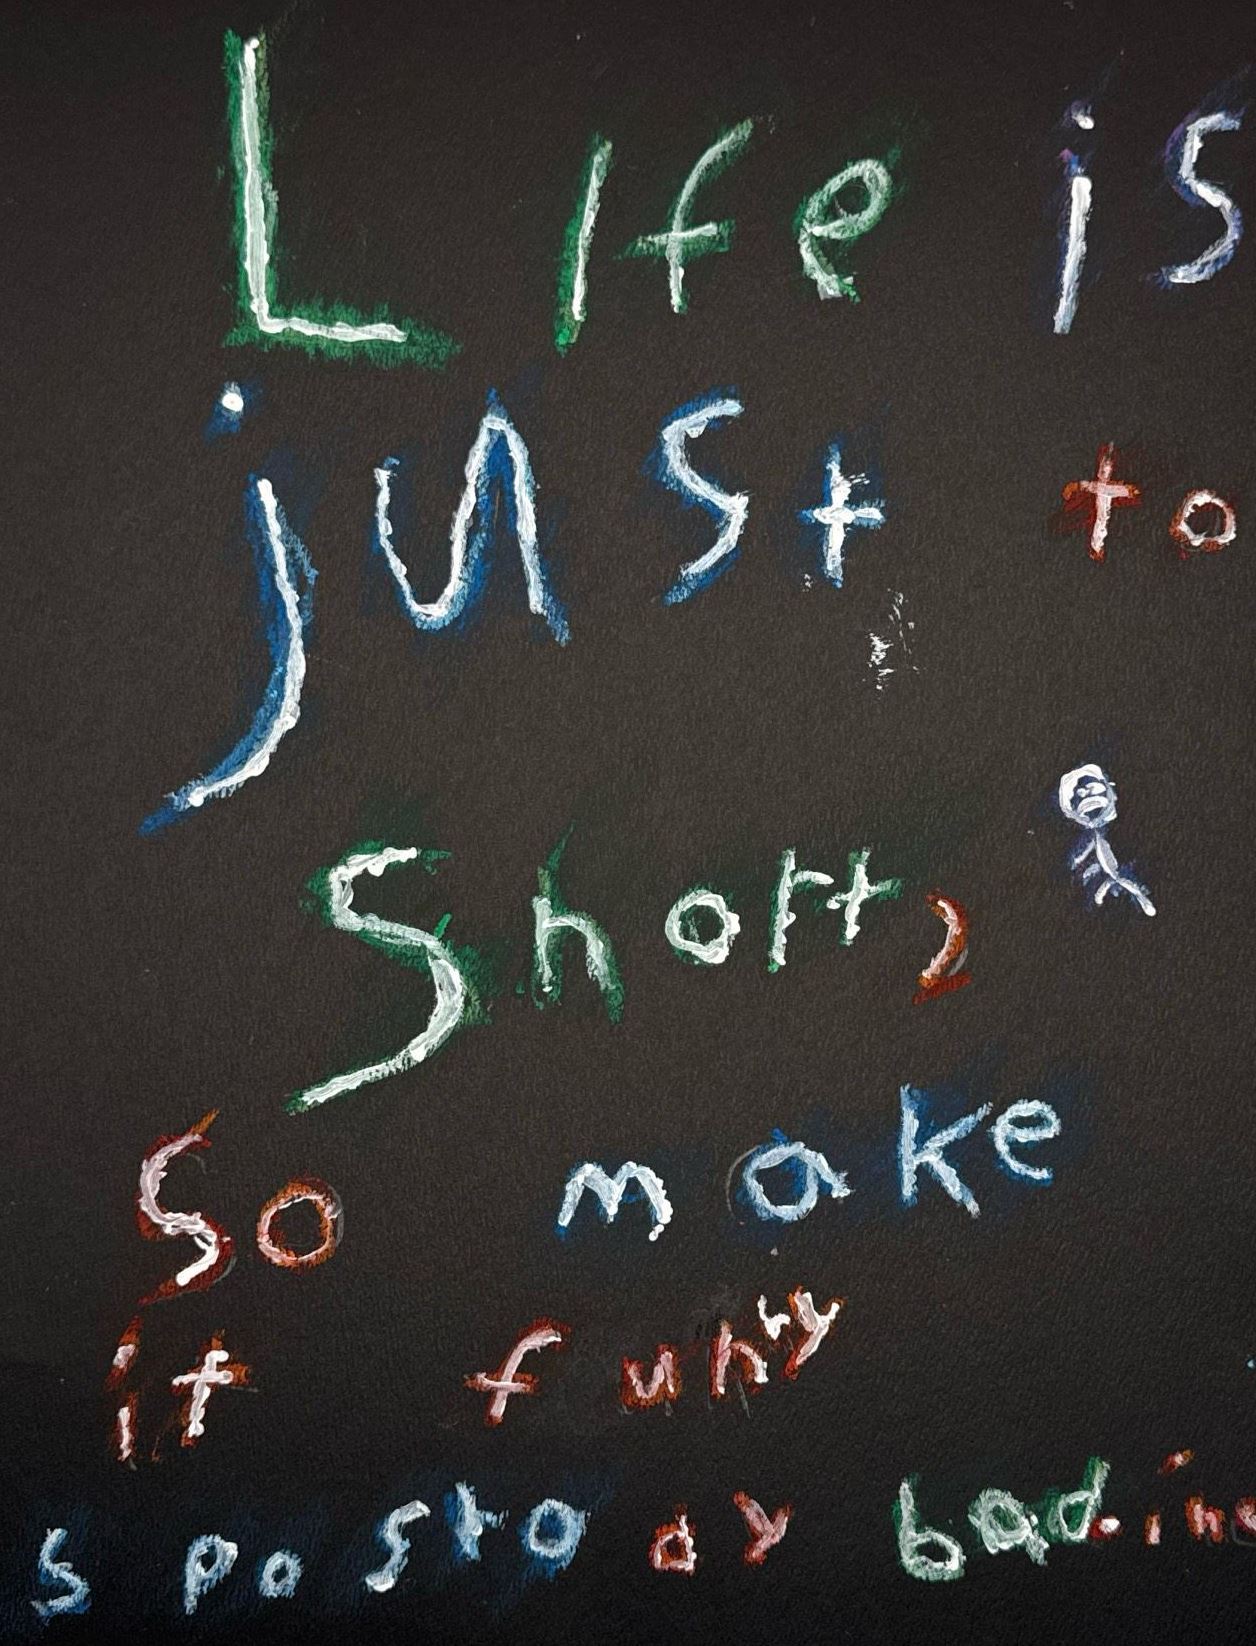 Life is
just to
Short,
So make
it funny
s po sto ay bad. in